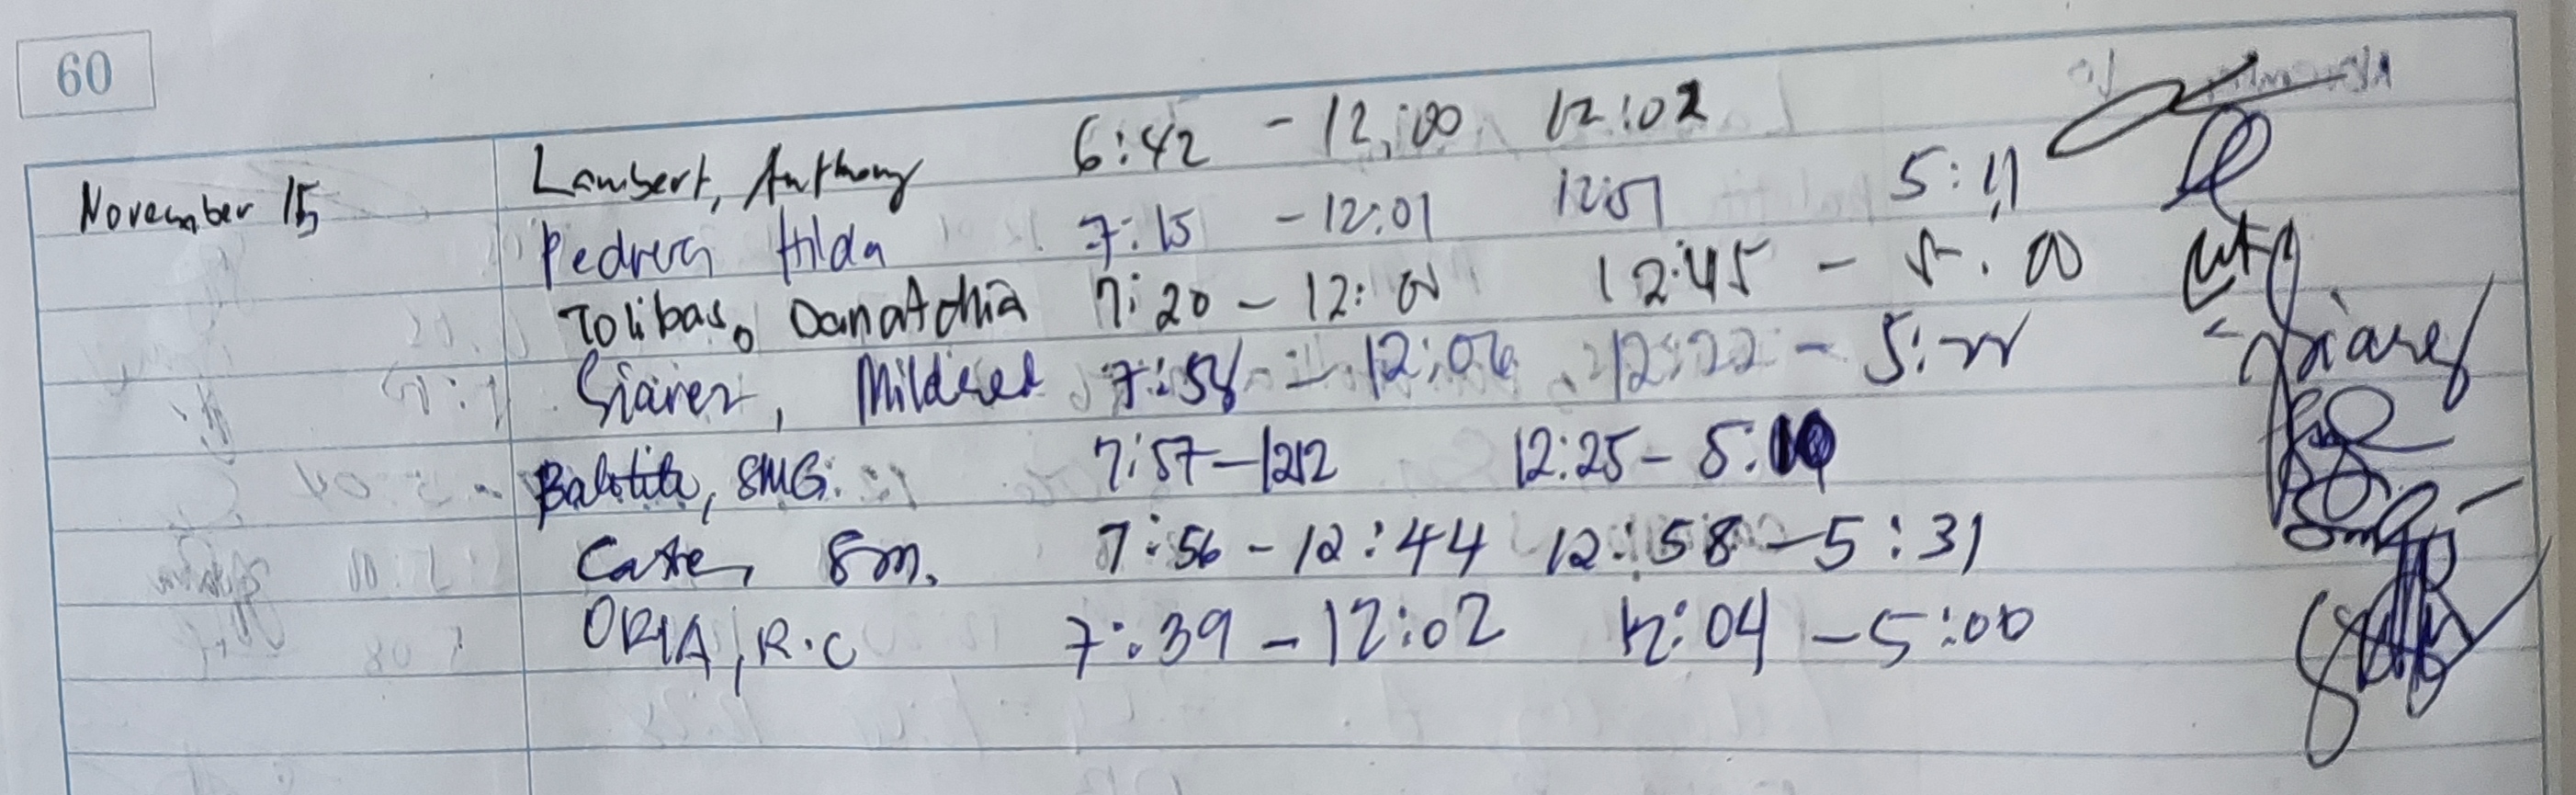 60
November 15 Lambert, Anthony 6:42 - 12:00 12:02
Pedrera Hilda 7:15 - 12:01 12:51 5:11
Tolibas, Danatchia 7:20 - 12:01 12:45 - 5:00
Siarez, Mildred 7:58 - 12:06 12:22 - 5:22
Balotite, SMG. 7:57 - 1212 12:25 - 5:10
Cater, SM. 7:56 - 12:44 12:58 - 5:31
ORIA, R.C 7:39 - 12:02 12:04 - 5:00